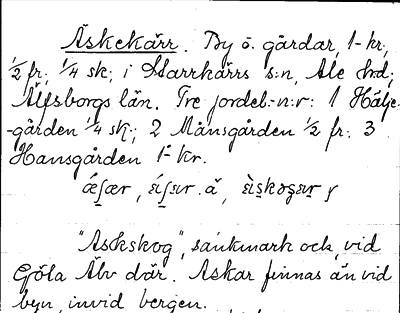 Äskekärr. By o. gårdar, 1- kr,
1/2 fr, 1/4 sk; i Starrkärrs s:n, Ale hd;
Älfsborgs län. Tre jordeb.-n:r: 1 Hälje-
-gården 1/4 sk; 2 Månsgården 1/2 fr: 3
Hansgården 1- kr.
"Askskog", sankmark och vid
Göta Älv där. Askar finnas än vid
byn, invid bergen.